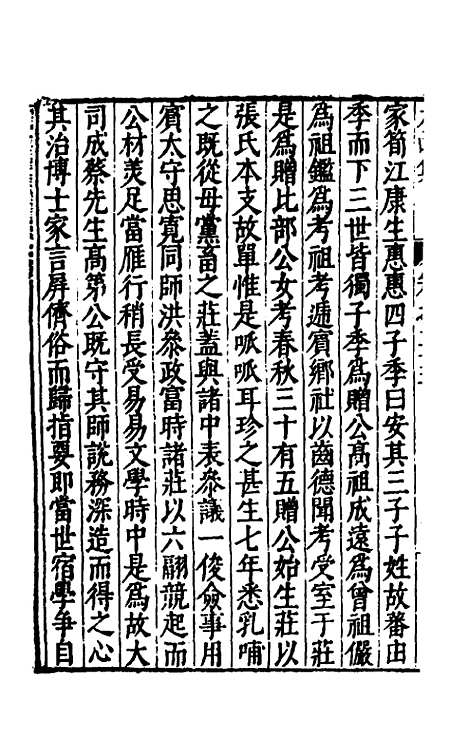 家荀江康生惠惠四子季曰安其三子子姓故蕃由
季而下三世皆獨子季爲贈公高祖成遠爲曾祖儼
爲祖鑑爲考祖考遞賓鄉社以齒德聞考受室于莊
是爲贈比部公女考春秋三十有五贈公始生莊以
張氏本支故單惟是呱呱耳珍之甚生七年悉乳哺
之既從母黨畜之莊蓋與諸中表叅議一俊僉事用
賓大守思寬同師洪叅政富時諸莊以六翮競起而
公材美足當雁行稍長受易易文學時中是爲故大
司成蔡先生高第公既守其師說務深造而得之心
其治博士家言屏儕俗而歸指要即當世宿學爭自